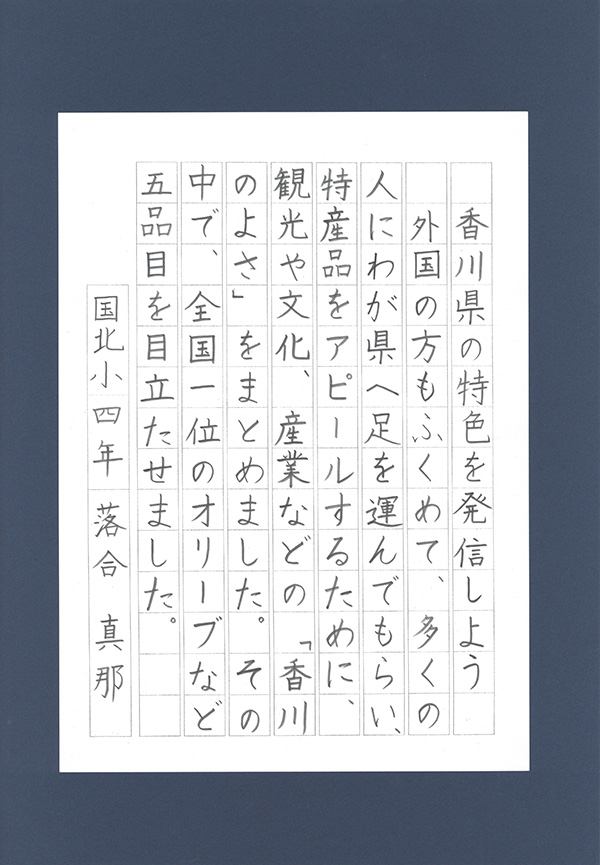 香川県の特色を発信しよう
外国の方もふくめて、多くの
人にわが県へ足を運んでもらい、
特産品をアピールするために、
観光や文化、産業などの「香川
のよさ」をまとめました。その
中で、全国一位のオリーブなど
五品目を目立たせました。
国北小四年 落合 真那